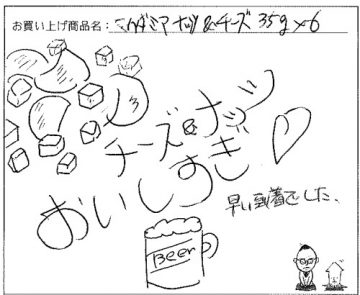 お買い上げ商品名： マカダミアナッツ&チーズ 35g×6
チーズ&ナッツ
おいしすぎ♡
早い到着でした。
Beer